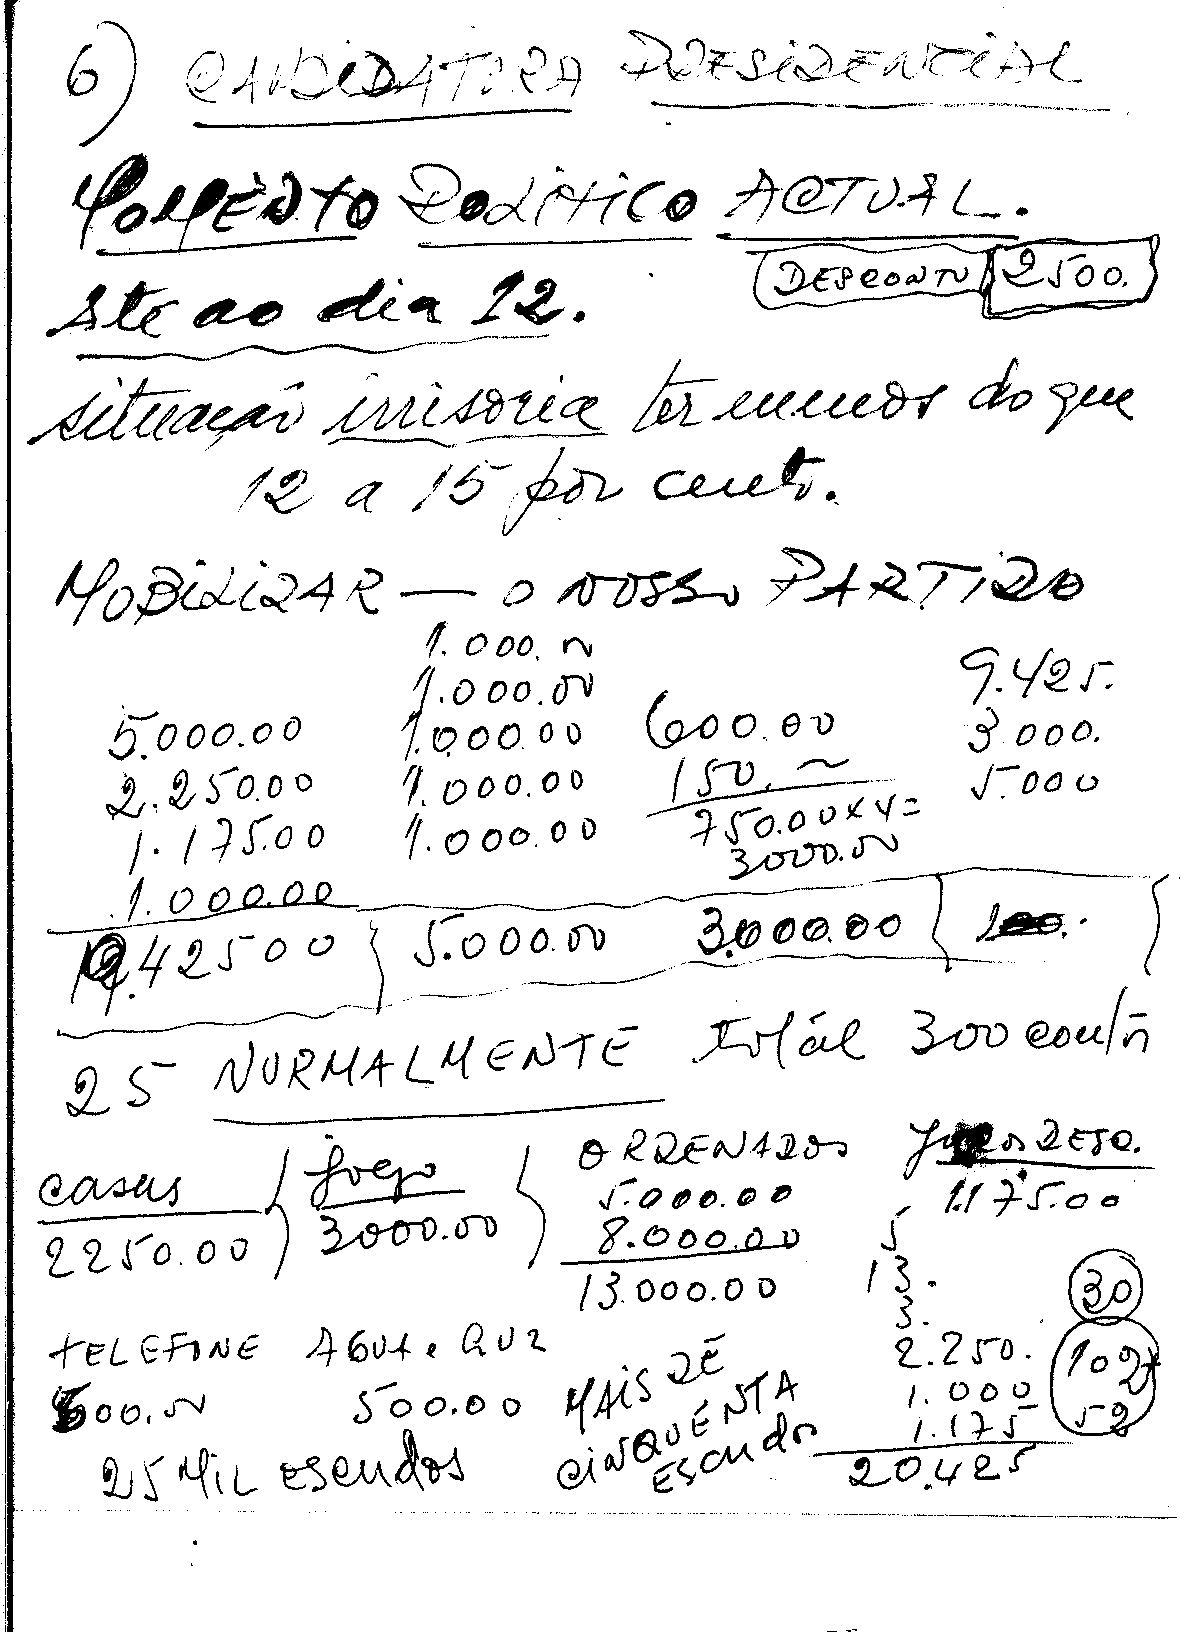 6) CANDIDATURA PRESIDENCIAL
MOMENTO POLITICO ACTUAL.
DESCONTO 2500.
Ate ao dia 12.
situação irrisoria ter menos do que
12 a 15 por cento.
MOBILIZAR — O NOSSO PARTIDO
1.000.00
1.000.00 9.425.
5.000.00 1.000.00 600.00 3.000.
2.250.00 1.000.00 150. 5.000
1.175.00 1.000.00 750.00 x 4 =
3000.00
1.000.00
9.42500 5.000.00 3.000.00
25 NORMALMENTE total 300 contos
casas fogo ORDENADOS JUROS DESC.
2250.00 3000.00 5.000.00 1.175.00
8.000.00 5
13.000.00 13. 30
3.
TELEFONE AGUA e LUZ 2.250. 102
500.00 500.00 MAIS DE 1.000
CINQUENTA 1.175 52
25 MIL escudos ESCUDOS 20.425